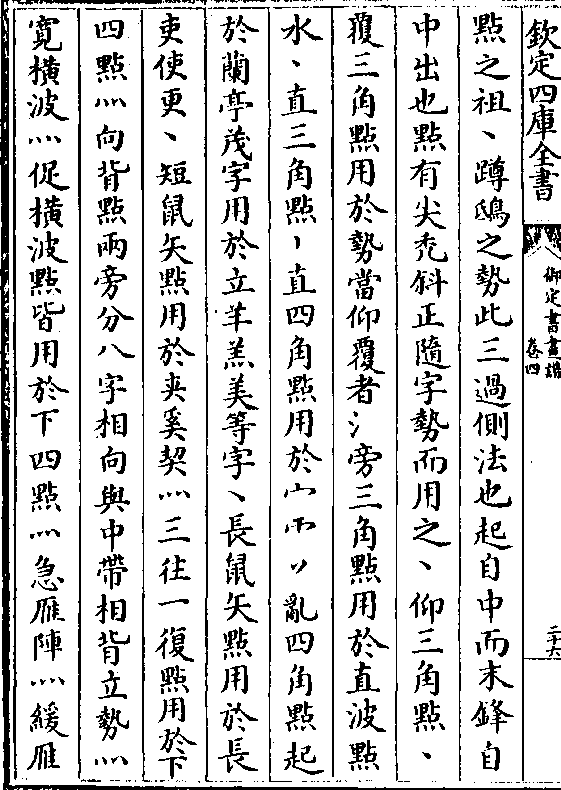 欽定四庫全書
御定書畫譜
卷四
二十六
點之祖丶蹲鴟之勢此三過側法也起自中而末鋒自
中出也點有尖禿斜正隨字勢而用之丶仰三角點丶
覆三角點用於勢當仰覆者氵旁三角點用於直波點
水丶直三角點丨直四角點用於宀雨丷亂四角點起
於蘭亭茂字用於立羊羔美等字丶長鼠矢點用於長
吏使更丶短鼠矢點用於夾奚契灬三往一復點用於下
四點灬向背點兩旁分八字相向與中帶相背立勢灬
寬橫波灬促橫波點皆用於下四點灬急雁陣灬緩雁